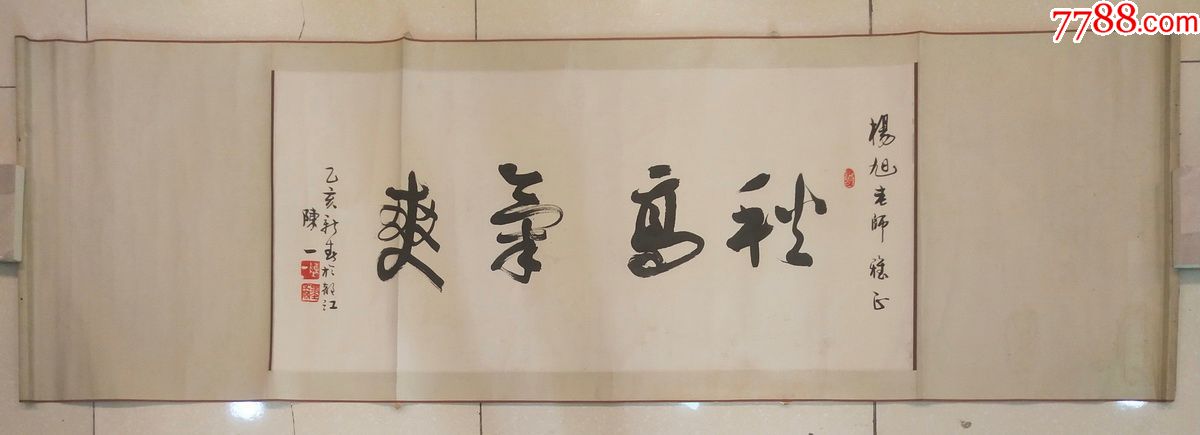 7788.com
楊旭老師雅正
秋高氣爽
乙亥新春於都江
陳一